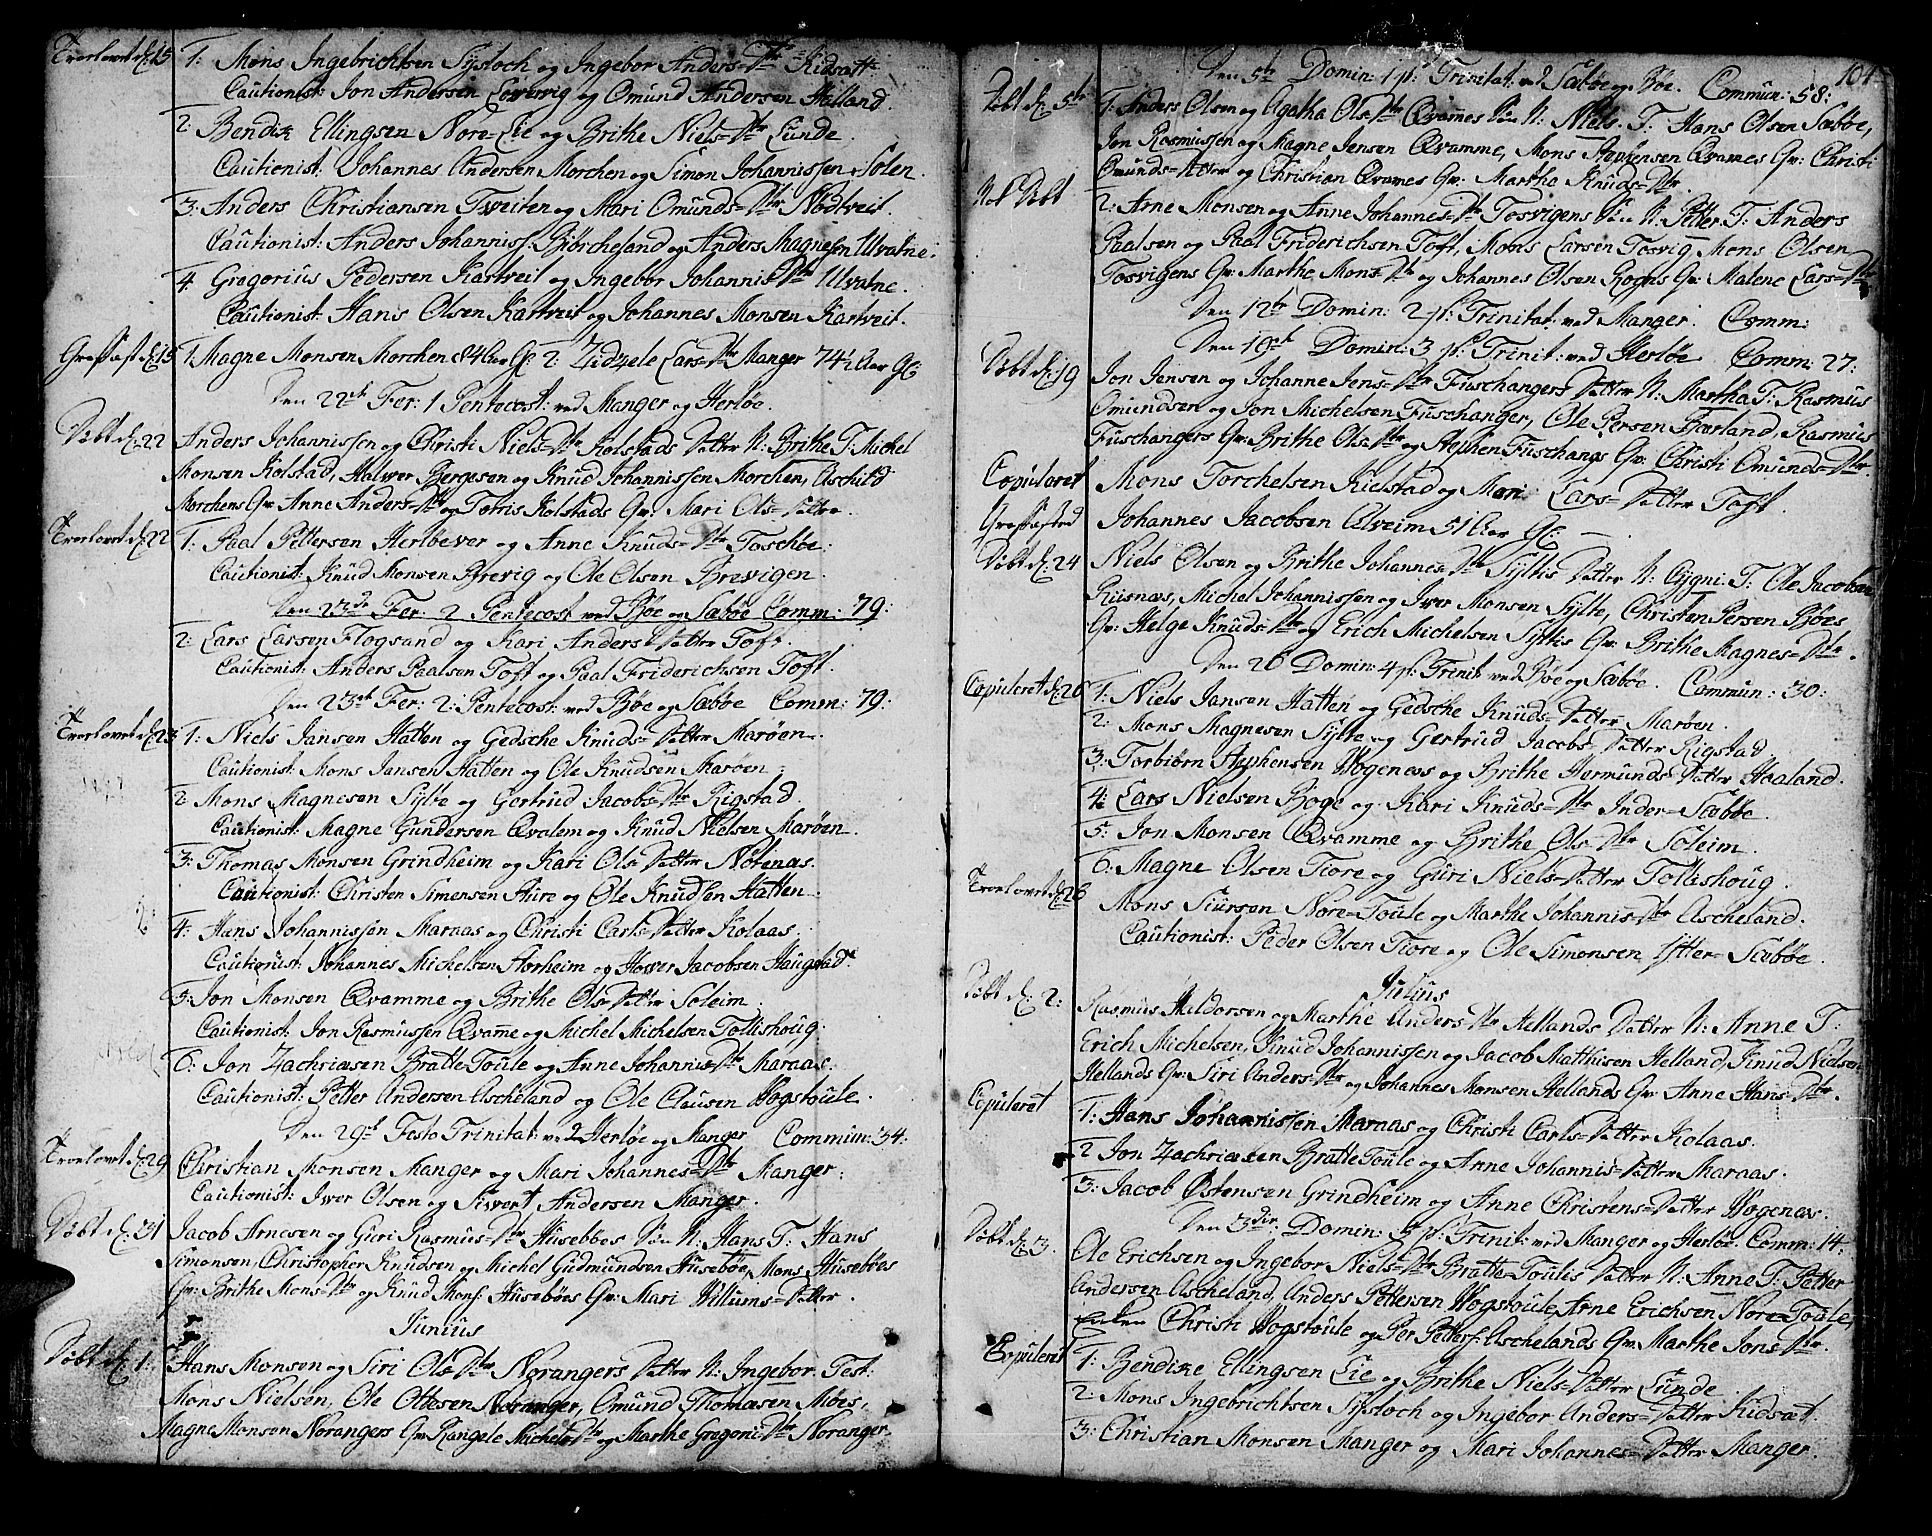 Trorlovet d. 15 1: Mons Ingebrichtsen Sÿsloch og Ingebor Anders-Dtr Kidsatt
Cautionist: Jon Andersen og Omund Andersen Halland.
2: Bendix Ellingsen Nore-Lie og Brithe Niels-Dtr Lunde.
Cautionist: Johannes Andersen Morchen og Simon Johannissen Solen.
3: Anders Christiansen Tweiten og Mari Omunds-Dtr Nödtveit.
Cautionist: Anders Johanniss: Biörcheland og Anders Magnesen Ulvatne.
4 Gregorius Pedersen Kartveit og Ingebor Johannis Dtr Ulvatne.
Cautionist: Hans Olsen Kartveit og Johannes Monsen Kartveit.
Græsfæst d. 15 1 Magne Monsen Morchen 84 Aar G: 2: Zidzele Lars-Dtr Manger 74½ Aar G:
Den 22de Fer: 1 Pentecost: ved Manger og Herlöe.
Döbt d. 22 Anders Johannissen og Christi Niels-Dtr Kolstads Datter N: Brithe T: Michel
Monsen Kolstad, Halver Bergesen og Knud Johannissen Morchen, Aschild
Morchens Qv: Anne Anders-Dtr og Torris Kolstads Qv: Mari Ols-Datter.
Trorlovet d. 22 1: Paal Pettersen Herlöevær og Anne Knuds-Dtr Toschöe:
Cautionist: Knud Monsen Brevig og Ole Olsen Brevigen.
Den 23de Fer: 2 Pentecost ved Böe og Sæböe Comm: 79:
2: Lars Larsen Flogsand og Kari Anders Datter Toft.
Cautionist: Anders Paalsen Toft og Paal Friderichsen Toft.
Den 23de Fer: 2: Pentecost: ved Böe og Sæböe Comm: 79:
Trorlovet d. 23 1: Niels Jansen Hatten og Gedsche Knuds-Datter Maröen.
Cautionist: Mons Jansen Hatten og Ole Knudsen Maröen:
2: Mons Magnesen Sylte og Gertrud Jacobs-Dtr Rigstad.
Cautionist: Magne Gundersen Qvalem og Knud Nielsen Maröen.
3: Thomas Monsen Grindheim og Kari Ols Datter Nötenæs.
Cautionist: Christen Simensen Aure og Ole Knudsen Hatten.
4: Hans Johannissen Maraas og Christi Carls-Datter Kolaas.
Cautionist: Johannes Michelsen Horheim og Hover Jacobsen Haugstad.
5: Jon Monsen Qvamme og Brithe Ols-Datter Soleim.
Cautionist: Jon Rasmussen Qvamme og Michel Michelsen Tollishoug.
6: Jon Zachriæsen Bratte-Toule og Anne Johannis-Dtr Maraas.
Cautionist: Petter Andersen Ascheland og Ole Clausen Hogstoule.
Den 29de Festo Trinitat: ved Herlöe og Manger Commun: 34:
Trorlovet d. 29 Christian Monsen Manger og Mari Johannes-Dtr Manger:
Cautionist: Iver Olsen og Sivert Andersen Manger.
Döbt d. 31 Jacob Arnesen og Guri Rasmus-Dtr Huseböes Sön N: Hans T: Hans
Simonsen, Christopher Knudsen og Michel Gudmundsen Huseböe, Mons Huseböes
Qv: Brithe Mons-Dtr og Knud Mons: Huseböes Qv: Mari Villums-Datter.
Junius
Döbt d. 1: Hans Monsen og Siri Ols Dtr Norangers Datter N: Ingebor Test:
Mons Nielsen, Ole Ottesen Noranger, Omund Thomæsen Möes,
Magne Monsen Norangers Qv: Rangele Michels-Dtr og Marthe Gregori Dtr Noranger.
104
Den 5te Domin: 1 p: Trinitat: ved Sæböe og Böe. Commun: 58:
Döbt d. 5te 1: Anders Olsen og Agatha Ols-Dtr Qvamnes Sön N: Niels. T: Hans Olsen Sæböe,
Jon Rasmussen og Magne Jensen Qvamme, Mons Stephensen Qvames Qv: Christi
Omunds-Datter og Christian Qvames Qv: Marthe Knuds-Dtr.
Döbt 2: Arne Monsen og Anne Johannes-Dtr Tosvigens Sön N: Petter T: Anders
Paalsen og Paal Friderichsen Toft, Mons Larsen Tosvig, Mons Olsen
Tosvigens Qv: Marthe Mons Dtr og Johannes Olsen Rogns Qv: Malene Lars-Dtr
Den 12te Domin: 2 p: Trinitat: ved Manger. Comm:
Den 19de Domin: 3 p: Trinit: ved Herlöe Comm: 27:
Döbt d. 19 Jon Jensen og Johanne Jens-Dtr Fuschangers Datter N: Martha T: Rasmus
Omundsen og Jon Michelsen Fuschanger, Ole Persen Færland, Rasmus
Fuschangers Qv: Brithe Ols Dtr og Stephen Fuschangs Qv: Christi Omunds-Dtr
Copuleret Mons Torchelsen Kielstad og Mari Lars-Datter Toft.
Græsfæsted Johannes Jacobsen Alveim 51 Aar G:
Döbt d. 24 Niels Olsen og Brithe Johannes-Dtr Syltis Datter N: Cygni: T: Ole Jacobsen
Risnæs, Michel Johannissen og Iver Monsen Sylte, Christen Persen Böes
Qv: Helge Knuds-Dtr og Erich Michelsen Syltis Qv: Brithe Magnes-Dtr.
Den 26 Domin: 4 p: Trinit: ved Böe og Sæböe. Commun: 30:
Copuleret d. 26 1: Niels Jansen Hatten og Gedsche Knuds-Datter Maröen.
2: Mons Magnesen Sylte og Gertrud Jacobs-Datter Rigstad
3: Torbiörn Stephensen Hogenæs og Brithe Hermunds Datter Haaland.
4: Lars Nielsen Boge og Kari Knuds-Dtr Inder-Sæböe.
5: Jon Monsen Qvamme og Brithe Ols-Dtr Soleim.
6: Magne Olsen Tiore og Guri Niels-Datter Tollishoug.
Trorlovet d. 26 Mons Siursen Nore-Toule og Marthe Johannis-Dtr Ascheland.
Cautionist: Peder Olsen Tiore og Ole Simonsen Ytter-Sæböe.
Julius
Döbt d. 2: Rasmus Haldorsen og Marthe Anders-Dtr Hellands Datter N: Anne T:
Erich Michelsen, Knud Johannissen og Jacob Matthisen Helland, Knud Nielsen
Hellands Qv: Siri Anders-Dtr og Johannes Monsen Hellands Qv: Anne Hans-Dtr.
Copuleret 1: Hans Johannissen Maraas og Christi Carls-Datter Kolaas.
2 Jon Zachriæsen Bratte Toule og Anne Johannis-Datter Maraas.
3: Jacob Östensen Grindheim og Anne Christens-Datter Hogenæs.
Den 3die Domin: 5 p: Trinit: ved Manger og Herlöe. Comm: 14:
Döbt d. 3. Ole Erichsen og Ingebor Niels-Dtr Bratte-Toulis Datter N: Anne T: Petter
Andersen Ascheland, Anders Pettersen Hogstoule, Arne Erichsen Nore-Toule,
Enken Christi Hogstoule og Per Petters: Aschelands Qv: Marthe Jons-Dtr.
Copuleret 1: Bendix Ellingsen Lie og Brithe Niels-Datter Lunde.
2: Mons Ingebrichtsen Sÿsloch og Ingebor Anders-Datter Kidsæt
3: Christian Monsen Manger og Mari Johannes-Datter Manger.